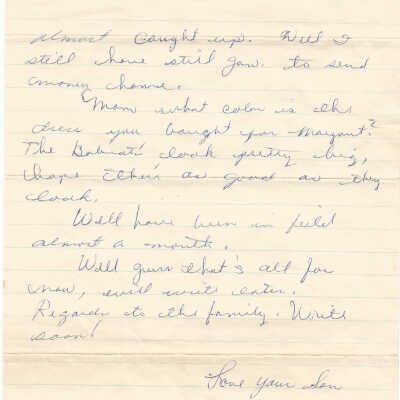 almost caught up. Will I
still have still Jan. to send
money home.
Mom what color is the
dress you bought for Margaret?
The look pretty big,
hope as good as they
look.
Will have been in field
almost a month.
Well guess that's all for
now, will write later.
Regards to the family. Write
soon!
Love Your Son